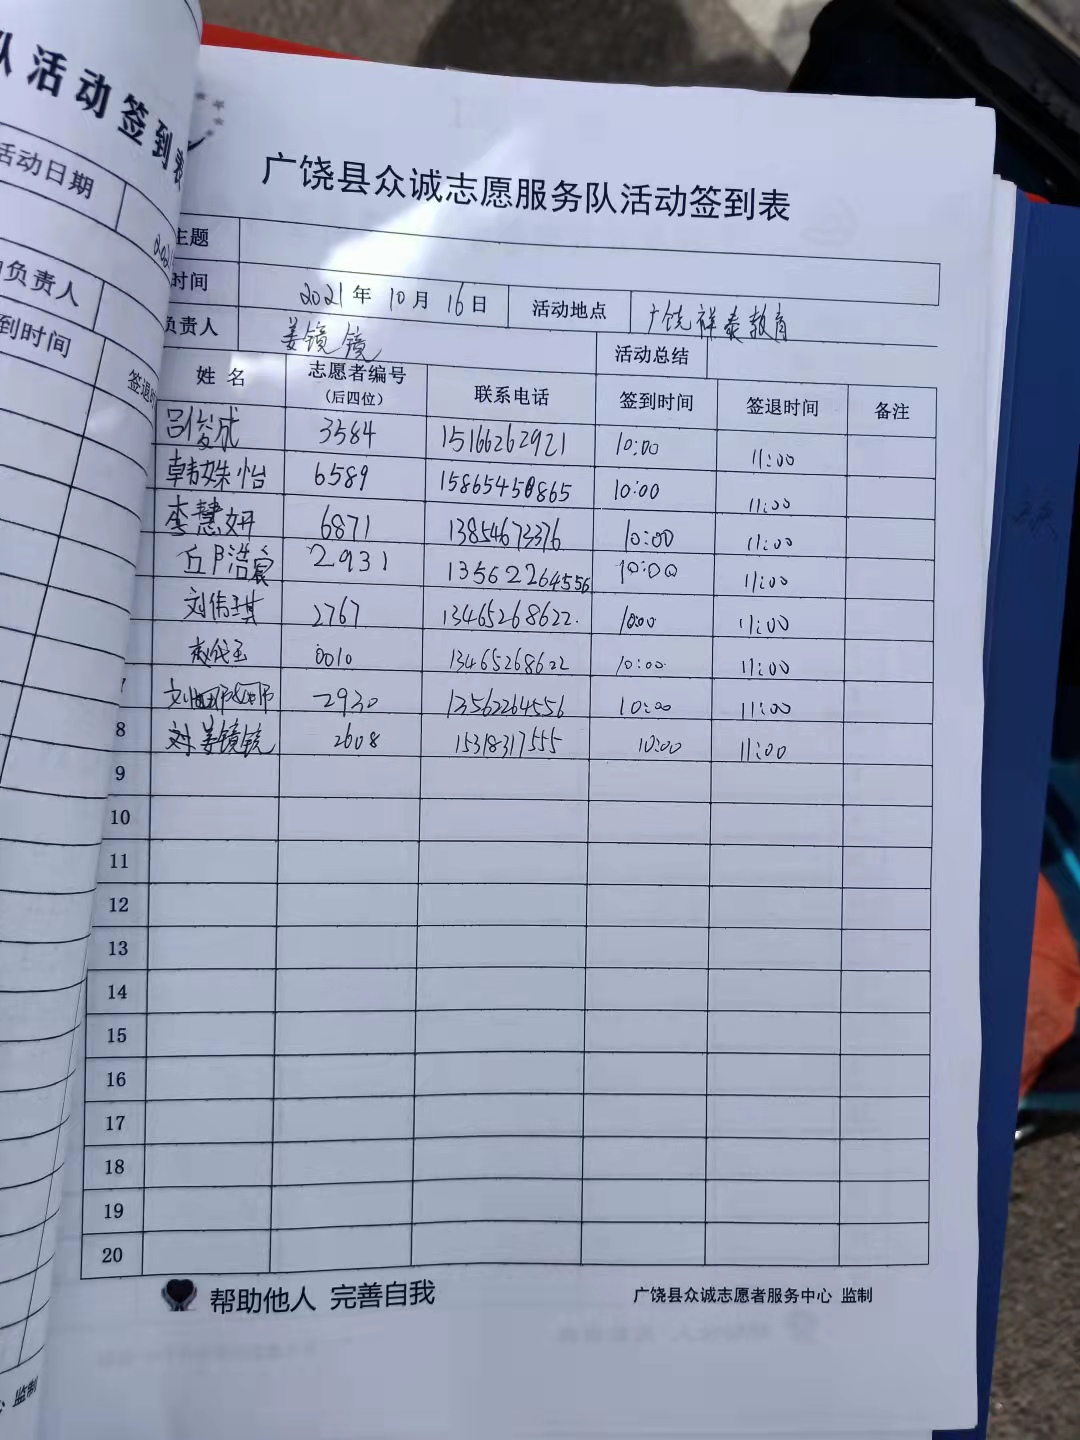 队活动签到表
活动日期
202
负责人
到时间
签退时
广饶县众诚志愿服务队活动签到表
主题
时间 2021年 10月 16日 活动地点 广饶祥泰教育
负责人 姜镜镜 活动总结
姓名 志愿者编号（后四位） 联系电话 签到时间 签退时间 备注
吕俊成 3584 15166262921 10:00 11:00
韩姝怡 6589 15865450865 10:00 11:00
李慧妍 6871 13854673376 10:00 11:00
丘浩宸 2931 13562264556 10:00 11:00
刘伟琪 2767 13465268622. 10:00 11:00
0010 13465268622 10:00 11:00
7 2930 13562264556 10:00 11:00
8 姜镜镜 2608 15318317555 10:00 11:00
9
10
11
12
13
14
15
16
17
18
19
20
帮助他人 完善自我 广饶县众诚志愿者服务中心 监制
监制